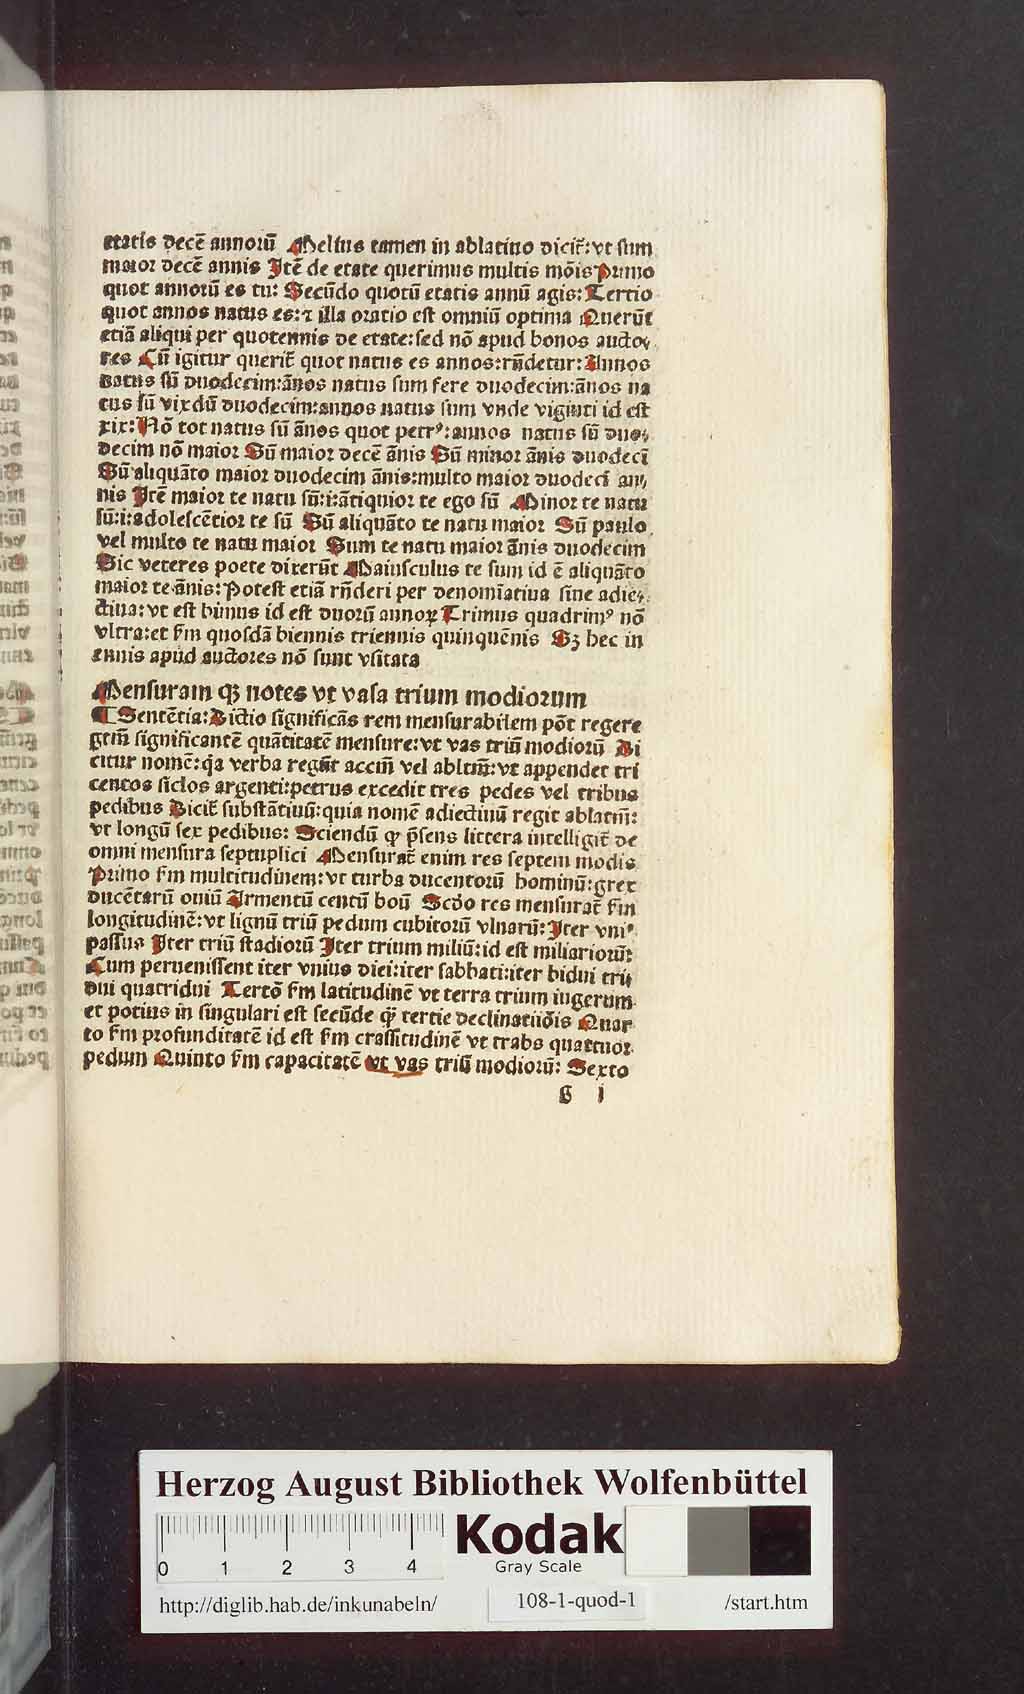 etatis decē annorū Melius tamen in ablatiuo dicit̄: vt sum
maior decē annis Itē de etate querimus multis mōis Primo
quot annorū es tu: Secūdo quotū etatis annū agis: Tertio
quot annos natus es: ⁊ illa oratio est omniū optima Querūt
etiā aliqui per quotennis de etate: sed nō apud bonos aucto⸗
res Cū igitur querit̄ quot natus es annos: rn̄detur: Annos
natus sū duodecim: ān̄os natus sum fere duodecim: ān̄os na
tus sū vixdū duodecim: annos natus sum vnde viginti id est
xix: Nō tot natus sū ān̄os quot petrꝰ: annos natus sū duo⸗
decim nō maior Sū maior decē ān̄is Sū minor ān̄is duodecī
Sū aliquāto maior duodecim ān̄is: multo maior duodecī an⸗
nis Itē maior te natu sū: i: ātiquior te ego sū Minor te natu
sū: i: adolescētior te sū Sū aliquāto te natu maior Sū paulo
vel multo te natu maior Sum te natu maior ān̄is duodecim
Sic veteres poete dixerūt Maiusculus te sum id ē aliquāto
maior te ān̄is: Potest etiā rn̄deri per denomīatiua siue adie⸗
ctiua: vt est bimus id est duorū annoꝝ Trimus quadrimꝰ nō
vltra: et ẜm quosdā biennis triennis quinquēnis Sꝫ hec in
ennis apud auctores nō sunt vsitata
Mensuram qꝫ notes vt vasa trium modiorum
¶ Sentētia: Dictio significās rem mensurabilem pōt regere
gtm̄ significantē quātitatē mensure: vt vas triū modiorū Di
citur nomē: qa verba regūt accm̄ vel abltm̄: vt appendet tri
centos siclos argenti: petrus excedit tres pedes vel tribus
pedibus Dicit̄ substātiuū: quia nomē adiectiuū regit ablatm̄:
vt longū sex pedibus: Sciendū ꝙ p̄sens littera intelligit̄ de
omni mensura septuplici Mensurat̄ enim res septem modis
Primo ẜm multitudinem: vt turba ducentorū hominū: grex
ducētarū ouiū Armentū centū boū Scd̄o res mensurat̄ ẜm
longitudinē: vt lignū triū pedum cubitorū vlnarū: Iter vniꝰ
passus Iter triū stadiorū Iter trium miliū: id est miliariorū:
Cum peruenissent iter vnius diei: iter sabbati: iter bidui tri⸗
dui quatridui Tertō ẜm latitudinē vt terra trium iugerum
et potius in singulari est secūde q̄ tertie declinatiōis Quar
to ẜm profunditatē id est ẜm crassitudinē vt trabs quattuor
pedum Quinto ẜm capacitatē vt vas triū modiorū: Sexto
G i
Herzog August Bibliothek Wolfenbüttel
0 1 2 3 4
Kodak
Gray Scale
http://diglib.hab.de/inkunabeln/ 108-1-quod-1 /start.htm